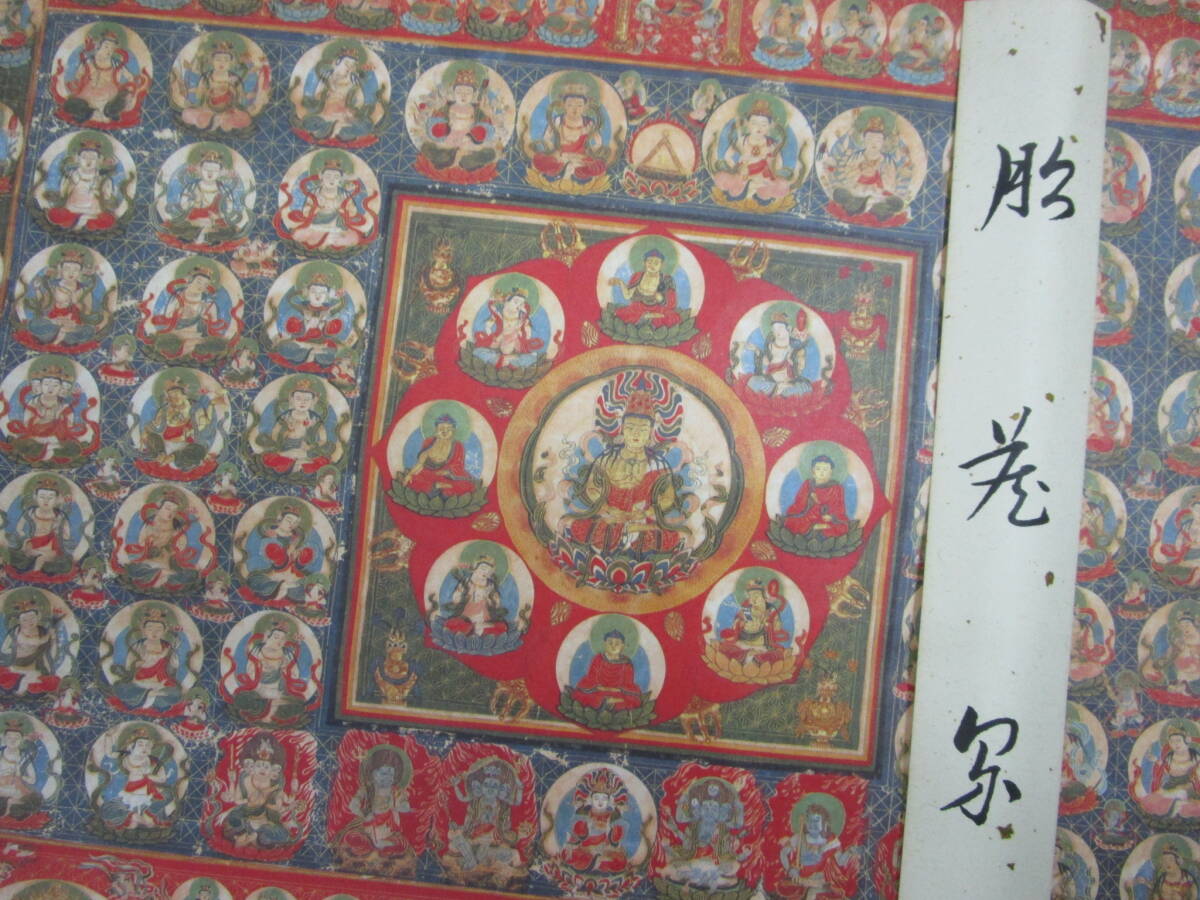 胎蔵界